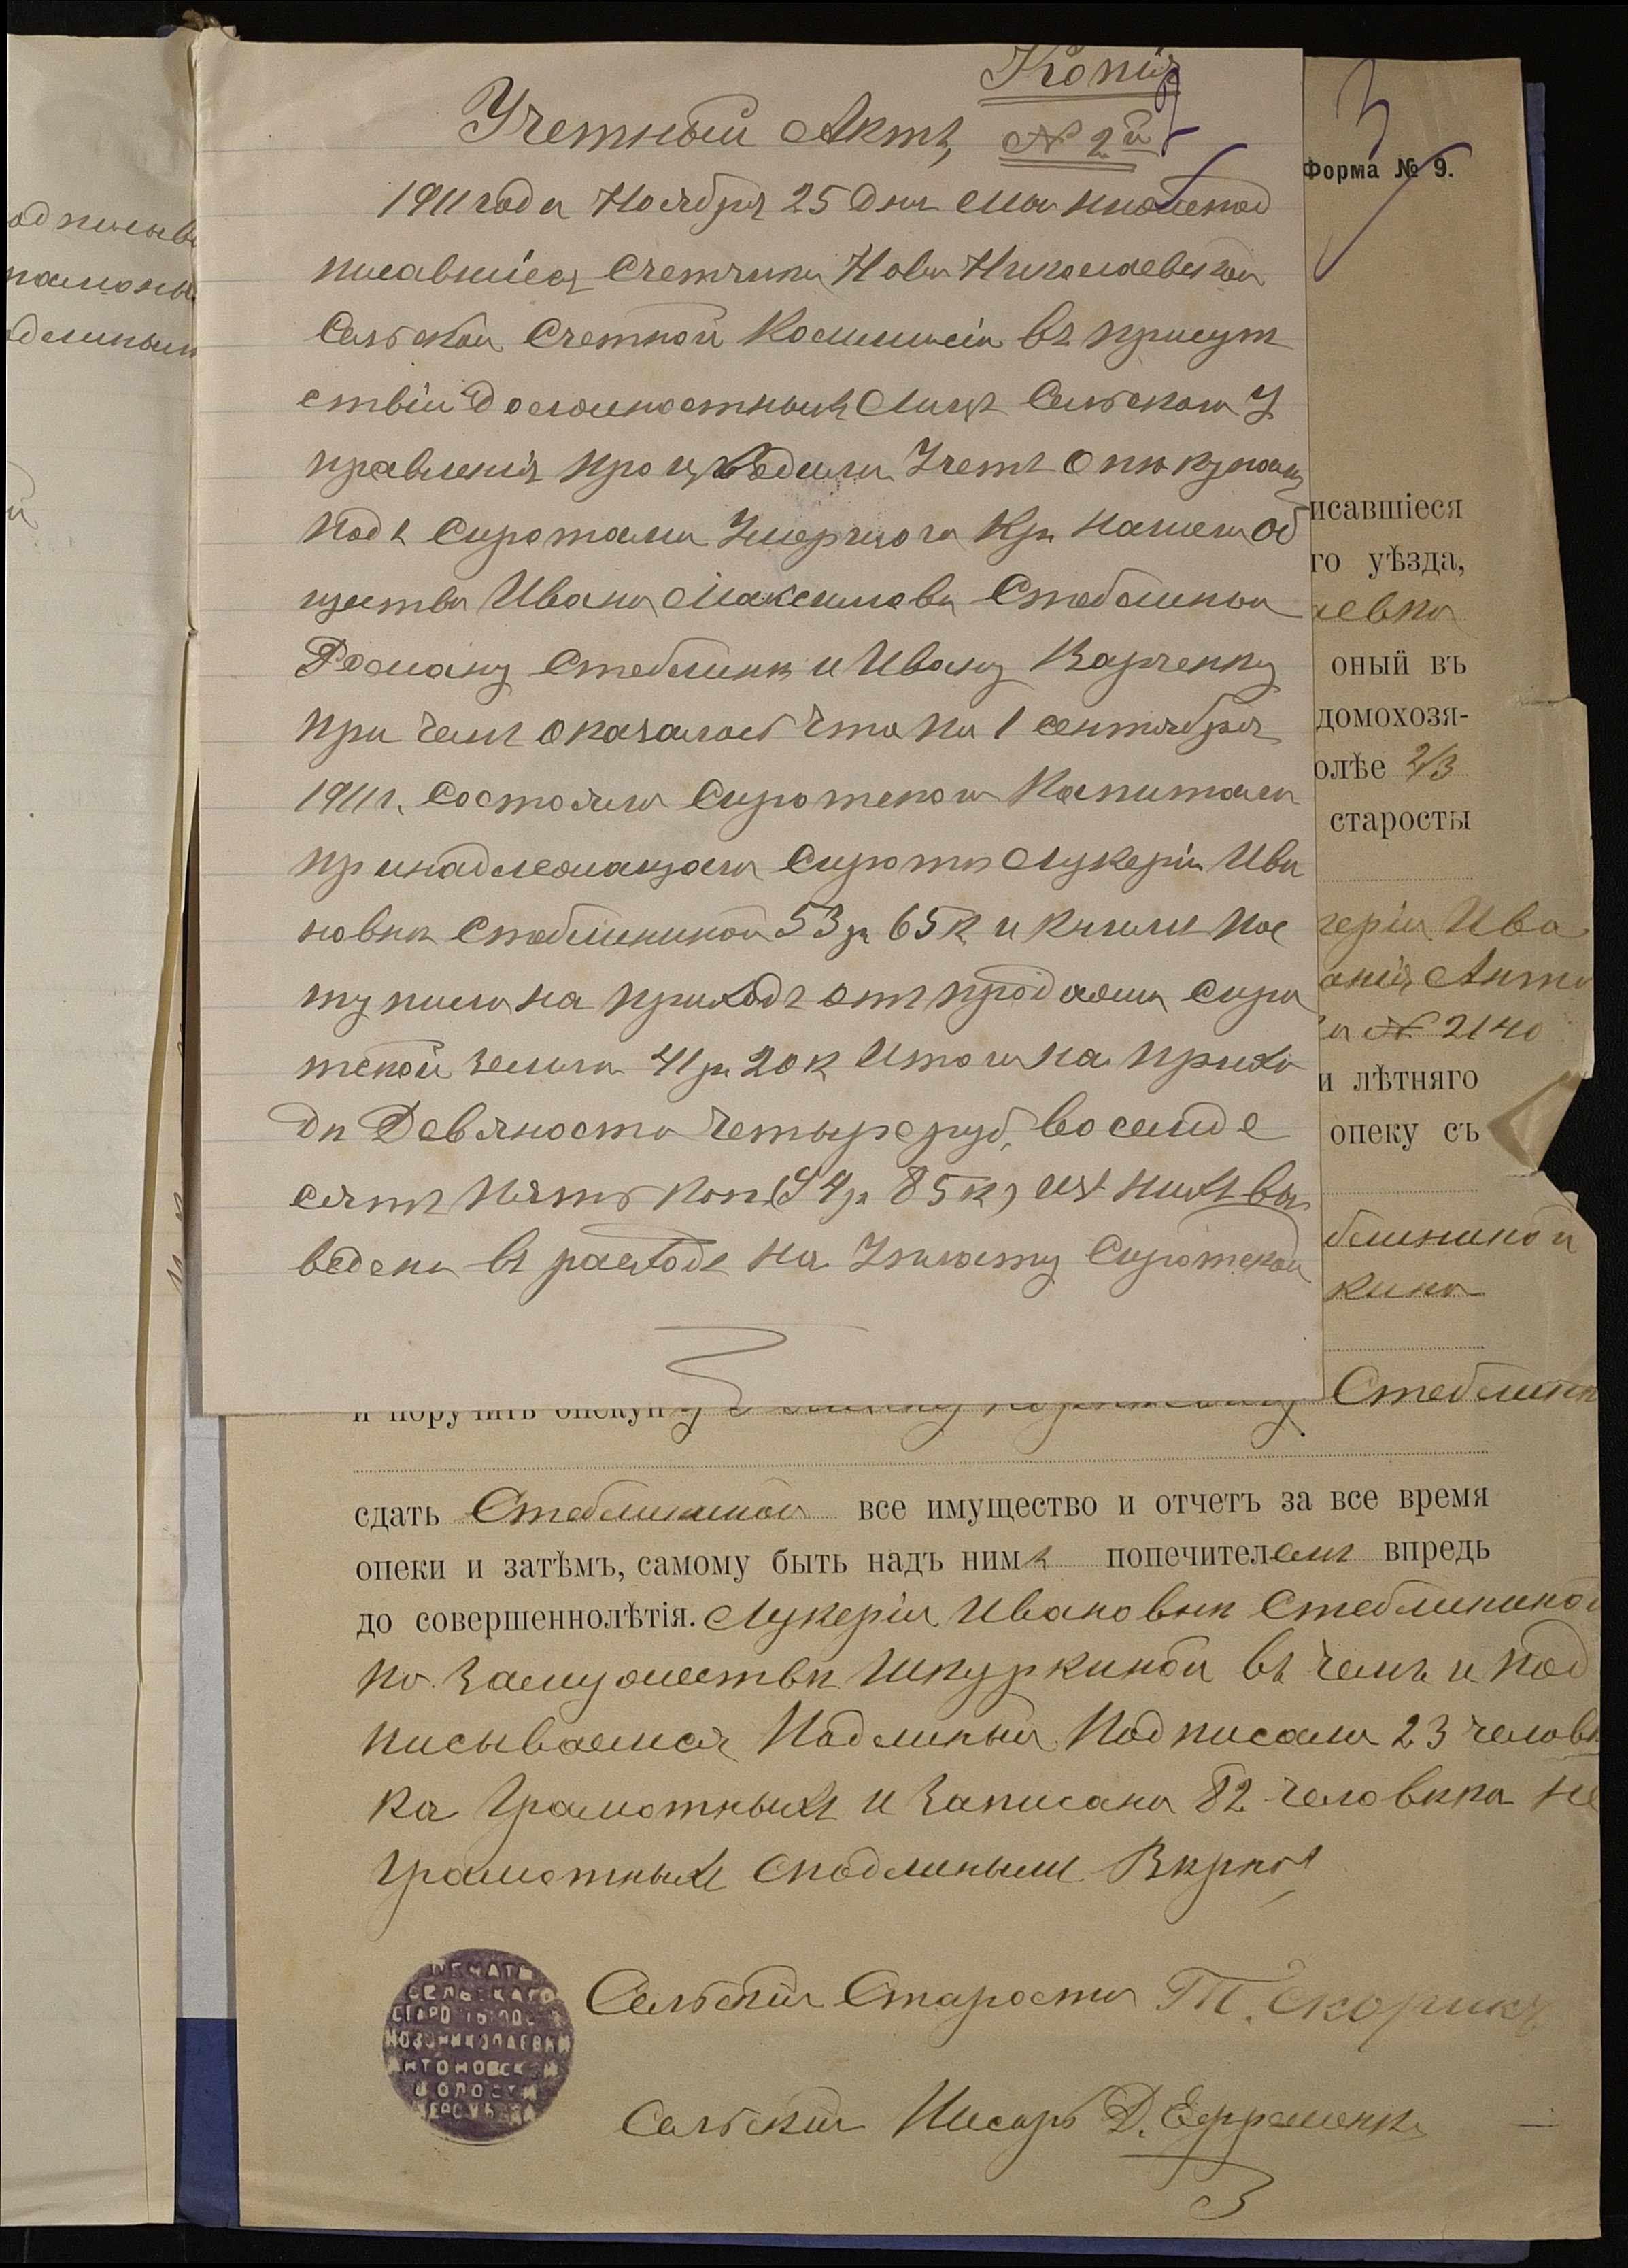 Копія
Учетный Актъ, № 2й
1911 года Ноября 25 дня мы нижепод
писавшіеся Счетчики Ново Николаевской
Сельской Счетной Коммисіи въ присут
ствіи должностныхъ лицъ Сельскаго У
правленія производили Учетъ Опекунамъ
надъ Сиротами Умершаго Кр. нашего Об
щества Ивана Максимова Стеблины
Роману Стеблинѣ и Ивану Карченку
при чемъ оказалось что на 1 сентября
1911 г. Состояло Сиротскаго Капитала
принадлежащаго Сиротѣ Лукеріи Ива
новнѣ Стеблининой 53 р 65 к и къ нимъ пос
тупило на приходъ отъ продажи Сиро
тской земли 41 р 20 к Итого на прихо
дѣ Девяносто четыре руб, восемде
сятъ пять коп (94 р 85 к) изъ нихъ вы
ведено въ расходъ на Уплату Сиротской
одписыв
дленным
й
3
Форма № 9.
исавшіеся
го уѣзда,
аевка
оный въ
домохозя-
олѣе 2/3
старосты
керіи Ива
анія Анто
№ 2140
и лѣтняго
опеку съ
блининой
кина
и поручить опекуну Стеблинѣ
сдать Стеблининой все имущество и отчетъ за все время
опеки и затѣмъ, самому быть надъ нимъ попечителемъ впредь
до совершеннолѣтія. Лукеріи Ивановнѣ Стеблининой
по Замужествѣ Шкуркиной въ чемъ и под
писываемся Подлинный Подписали 23 человѣ
ка Грамотныхъ и Записано 82 человѣка не
грамотныхъ сподлинымъ Вѣрно
Сельскій Староста Т. Скорикъ
Сельскій Писарь Д. Ефременко
ПЕЧАТЬ
СЕЛЬСКАГО
СТАРОСТЫ
НОВОНИКОЛАЕВКИ
АНТОНОВСКОЙ
ВОЛОСТИ